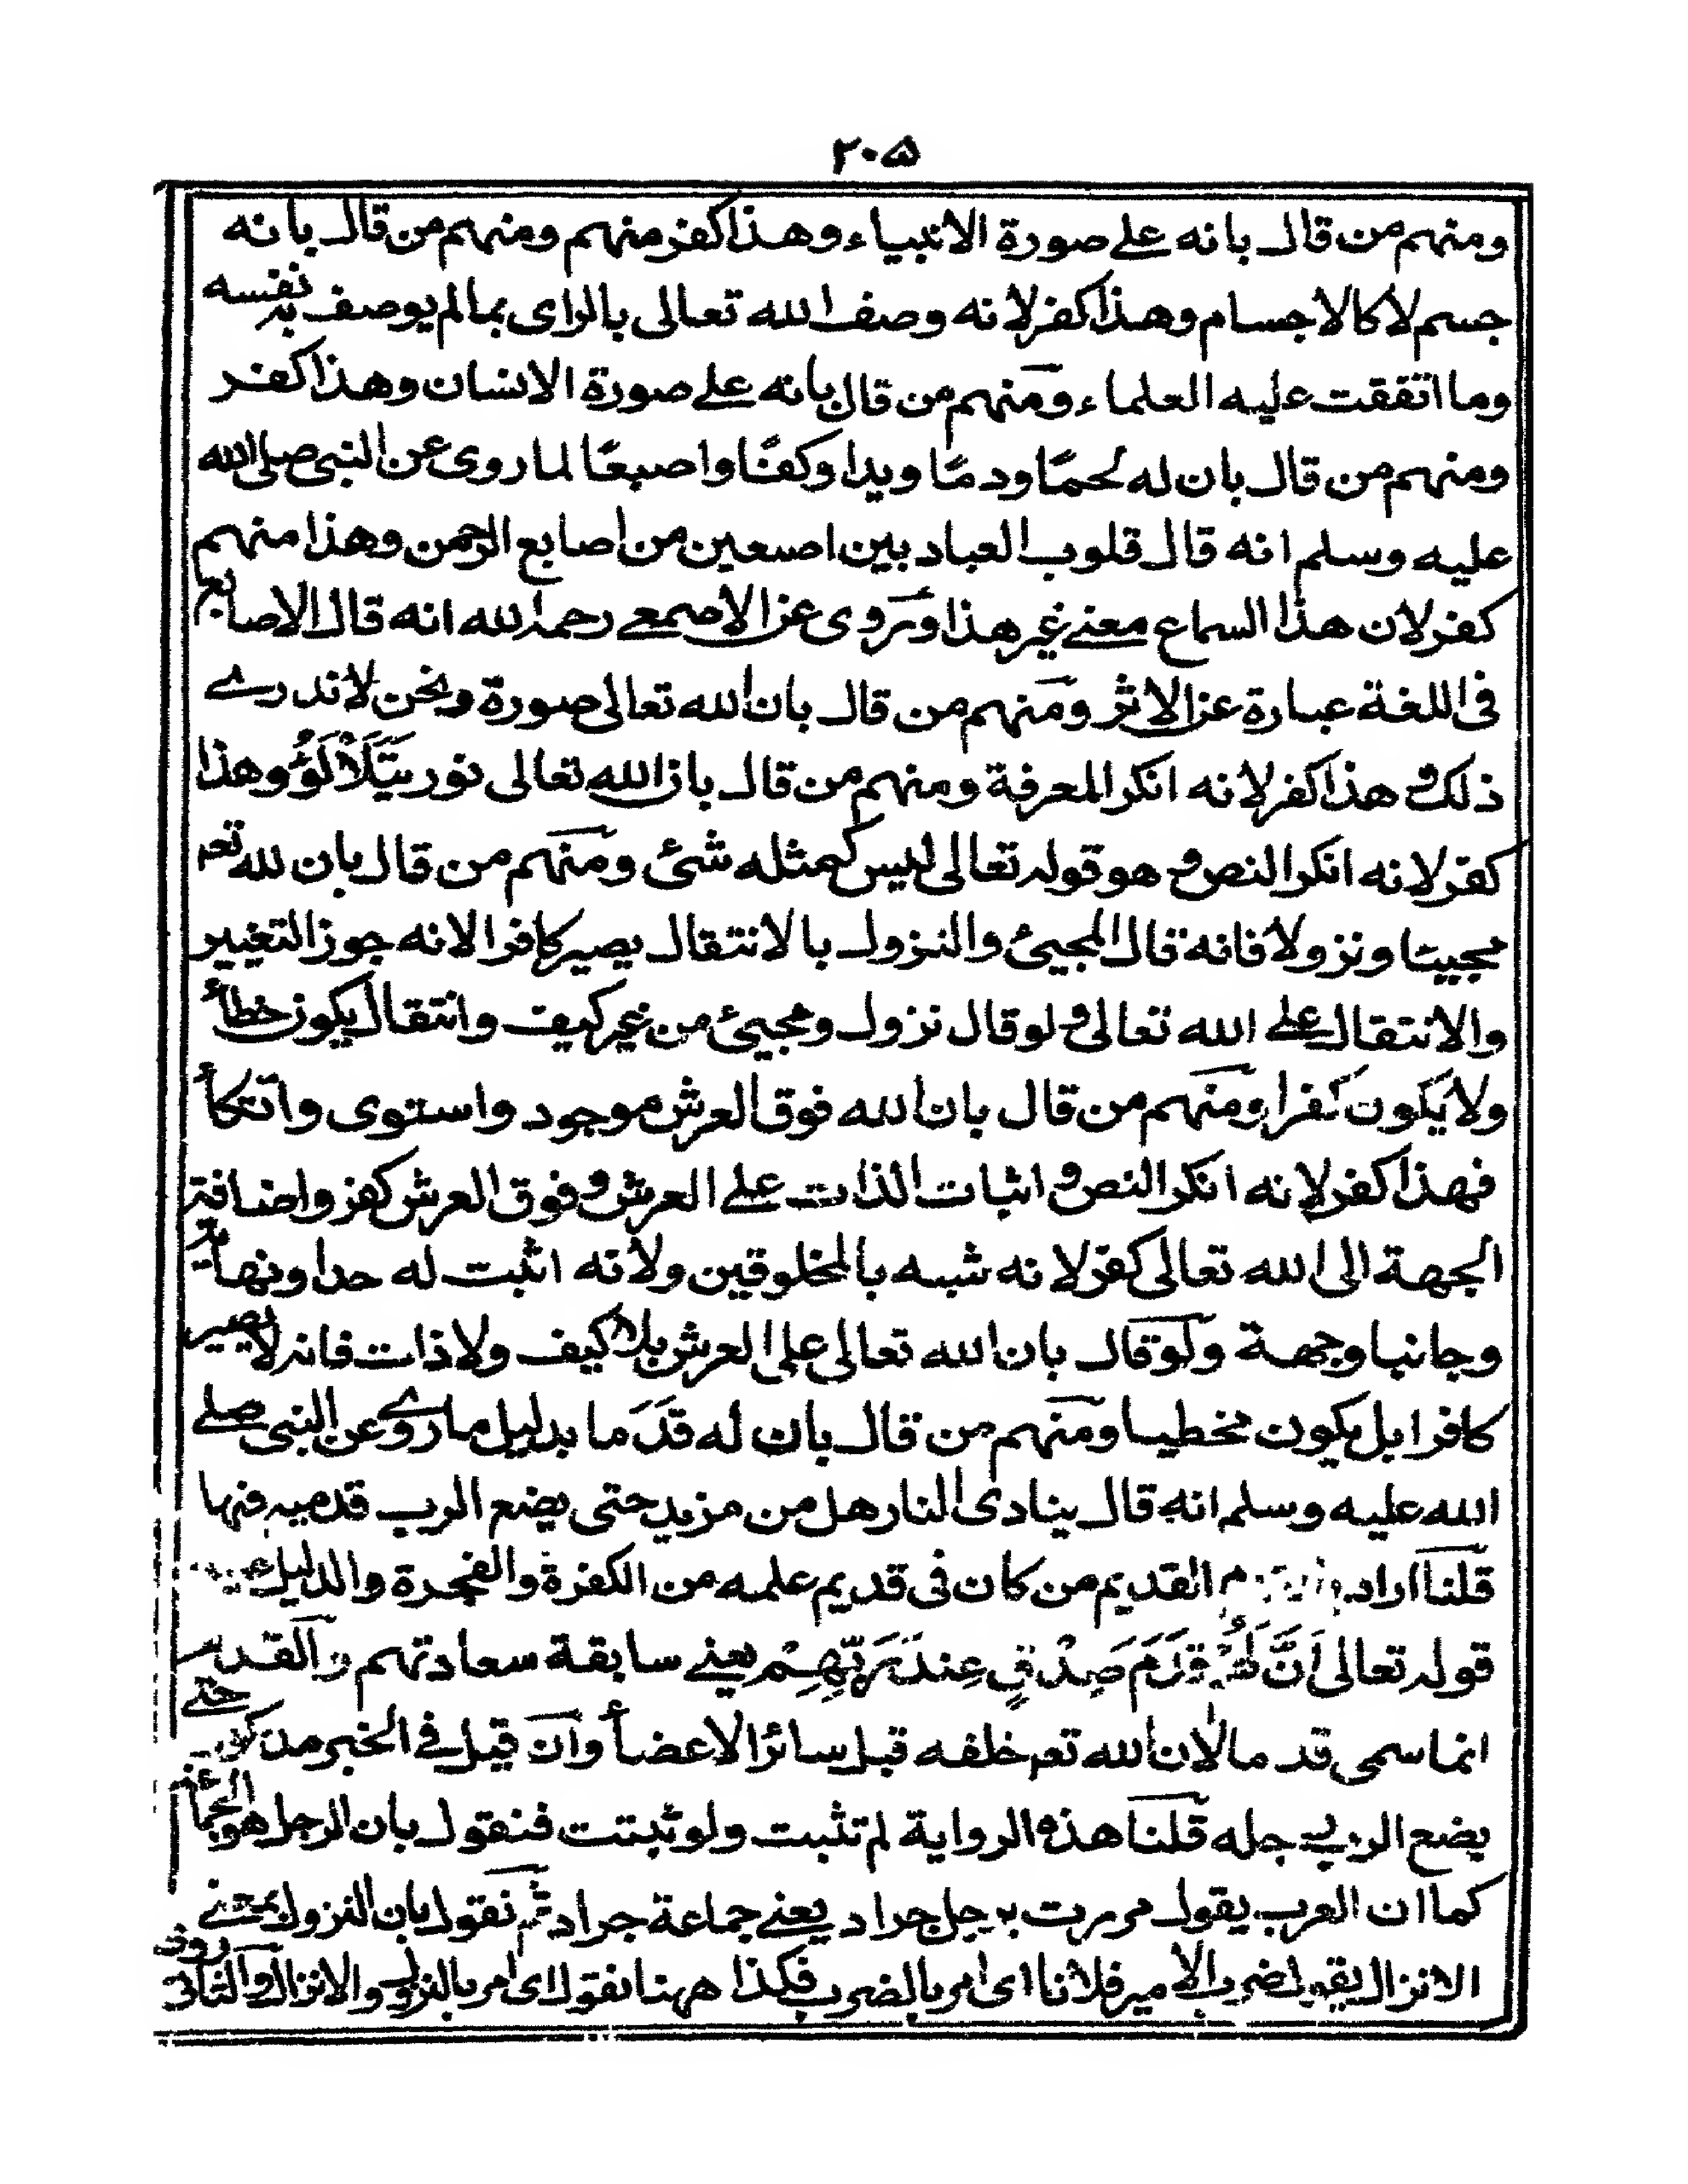 ٢٠٥
ومنهم من قال بانه على صورة الانبياء وهذا كفر منهم ومنهم من قال بانه
جسم لا كالاجسام وهذا كفر لانه وصف الله تعالى بالراى بما لم يوصف به نفسه
وما اتفقت عليه العلماء ومنهم من قال بانه على صورة الانسان وهذا كفر
ومنهم من قال بان له لحمًا ودمًا ويدا وكفًا واصبعًا لما روى عن النبى صلى الله
عليه وسلم انه قال قلوب العباد بين اصبعين من اصابع الرحمن وهذا منهم
كفر لان هذا السماع معنى غير هذا وروى عن الاصمعى رحمه الله انه قال الاصابع
فى اللغة عبارة عن الاثر ومنهم من قال بان الله تعالى صورة ونحن لا ندرى
ذلك و هذا كفر لانه انكر المعرفة ومنهم من قال بان الله تعالى نور يَتَلَأْلَؤُ وهذا
كفر لانه انكر النص و هو قوله تعالى ليس كمثله شئ ومنهم من قال بان لله تعـ
مجيئا ونزولا فانه قال المجيئ والنزول بالانتقال يصير كافرا لانه جوز التغيير
والانتقال على الله تعالى و لو قال نزول ومجيئ من غير كيف وانتقال يكون خطأ
ولا يكون كفرا ومنهم من قال بان الله فوق العرش موجود واستوى واتكأ
فهذا كفر لانه انكر النص و اثبات الذات على العرش و فوق العرش كفر واضافة
الجهة الى الله تعالى كفر لانه شبه بالمخلوقين ولانه اثبت له حدا ونهاية
وجانبا وجهة ولو قال بان الله تعالى على العرش بلا كيف ولا ذات فانه لا يصير
كافرا بل يكون مخطيا ومنهم من قال بان له قدما بدليل ما روى عن النبى صلى
الله عليه وسلم انه قال ينادى النار هل من مزيد حتى يضع الرب قدميه فيها
قلنا اراد القديم من كان فى قديم علمه من الكفرة والفجرة والدليل عليه
قوله تعالى اَنَّ لَهُمْ قَدَمَ صِدْقٍ عِنْدَ رَبِّهِمْ يعنى سابقة سعادتهم والقدم
انما سمى قدما لان الله تعـ خلقه قبل سائر الاعضأ وان قيل فى الخبر مذكور حتى
يضع الرب رجله قلنا هذه الرواية لم تثبت ولو ثبتت فنقول بان الرجل هو الجماعة
كما ان العرب يقول مررت برجل جراد يعنى جماعة جراد ثم نقول بان النزول بمعنى
الانزال يقول ضرب الامير فلانا اى امر بالضرب فكذا ههنا نقول اى امر بالنزول والانزال والثانى روى